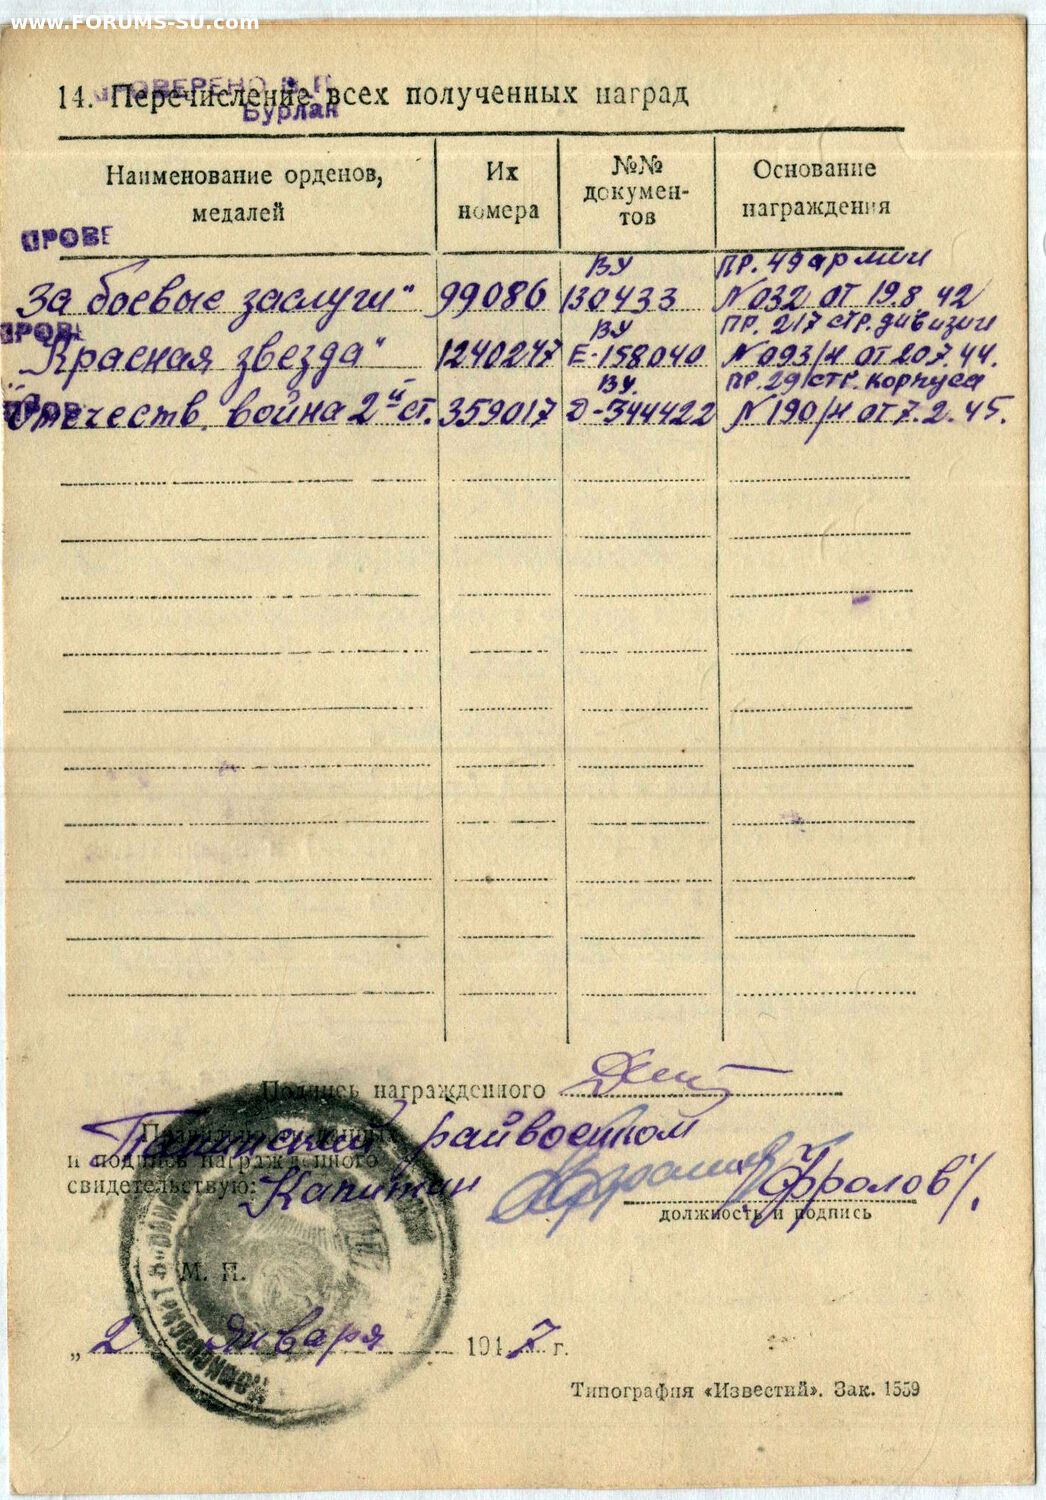 www.FORUMS-SU.com
ПРОВЕРЕНО
14. Перечисление всех полученных наград
Бурлак
Наименование орденов, медалей
Их номера
№№ докумен-тов
Основание награждения
ПРОВЕ
За боевые заслуги" 99086 ВУ 130433 пр. 49 армии №032 от 19.8 42
ПРОВЕ
"Красная звезда" 1240247 ВУ Е-158040 пр. 217 стр. дивизии №093/н от 20.7.44.
ПРОВ
"Отечеств. война 2й ст. 359017 ВУ. Д-344422 пр. 29 стр. корпуса №190/н от 7.2.45.
Подпись награжденного
райвоенком
и подпись награжденного
свидетельствую: Капитан Фролов/.
должность и подпись
М. П.
„2" Января 1947 г.
Типография «Известий». Зак. 1559